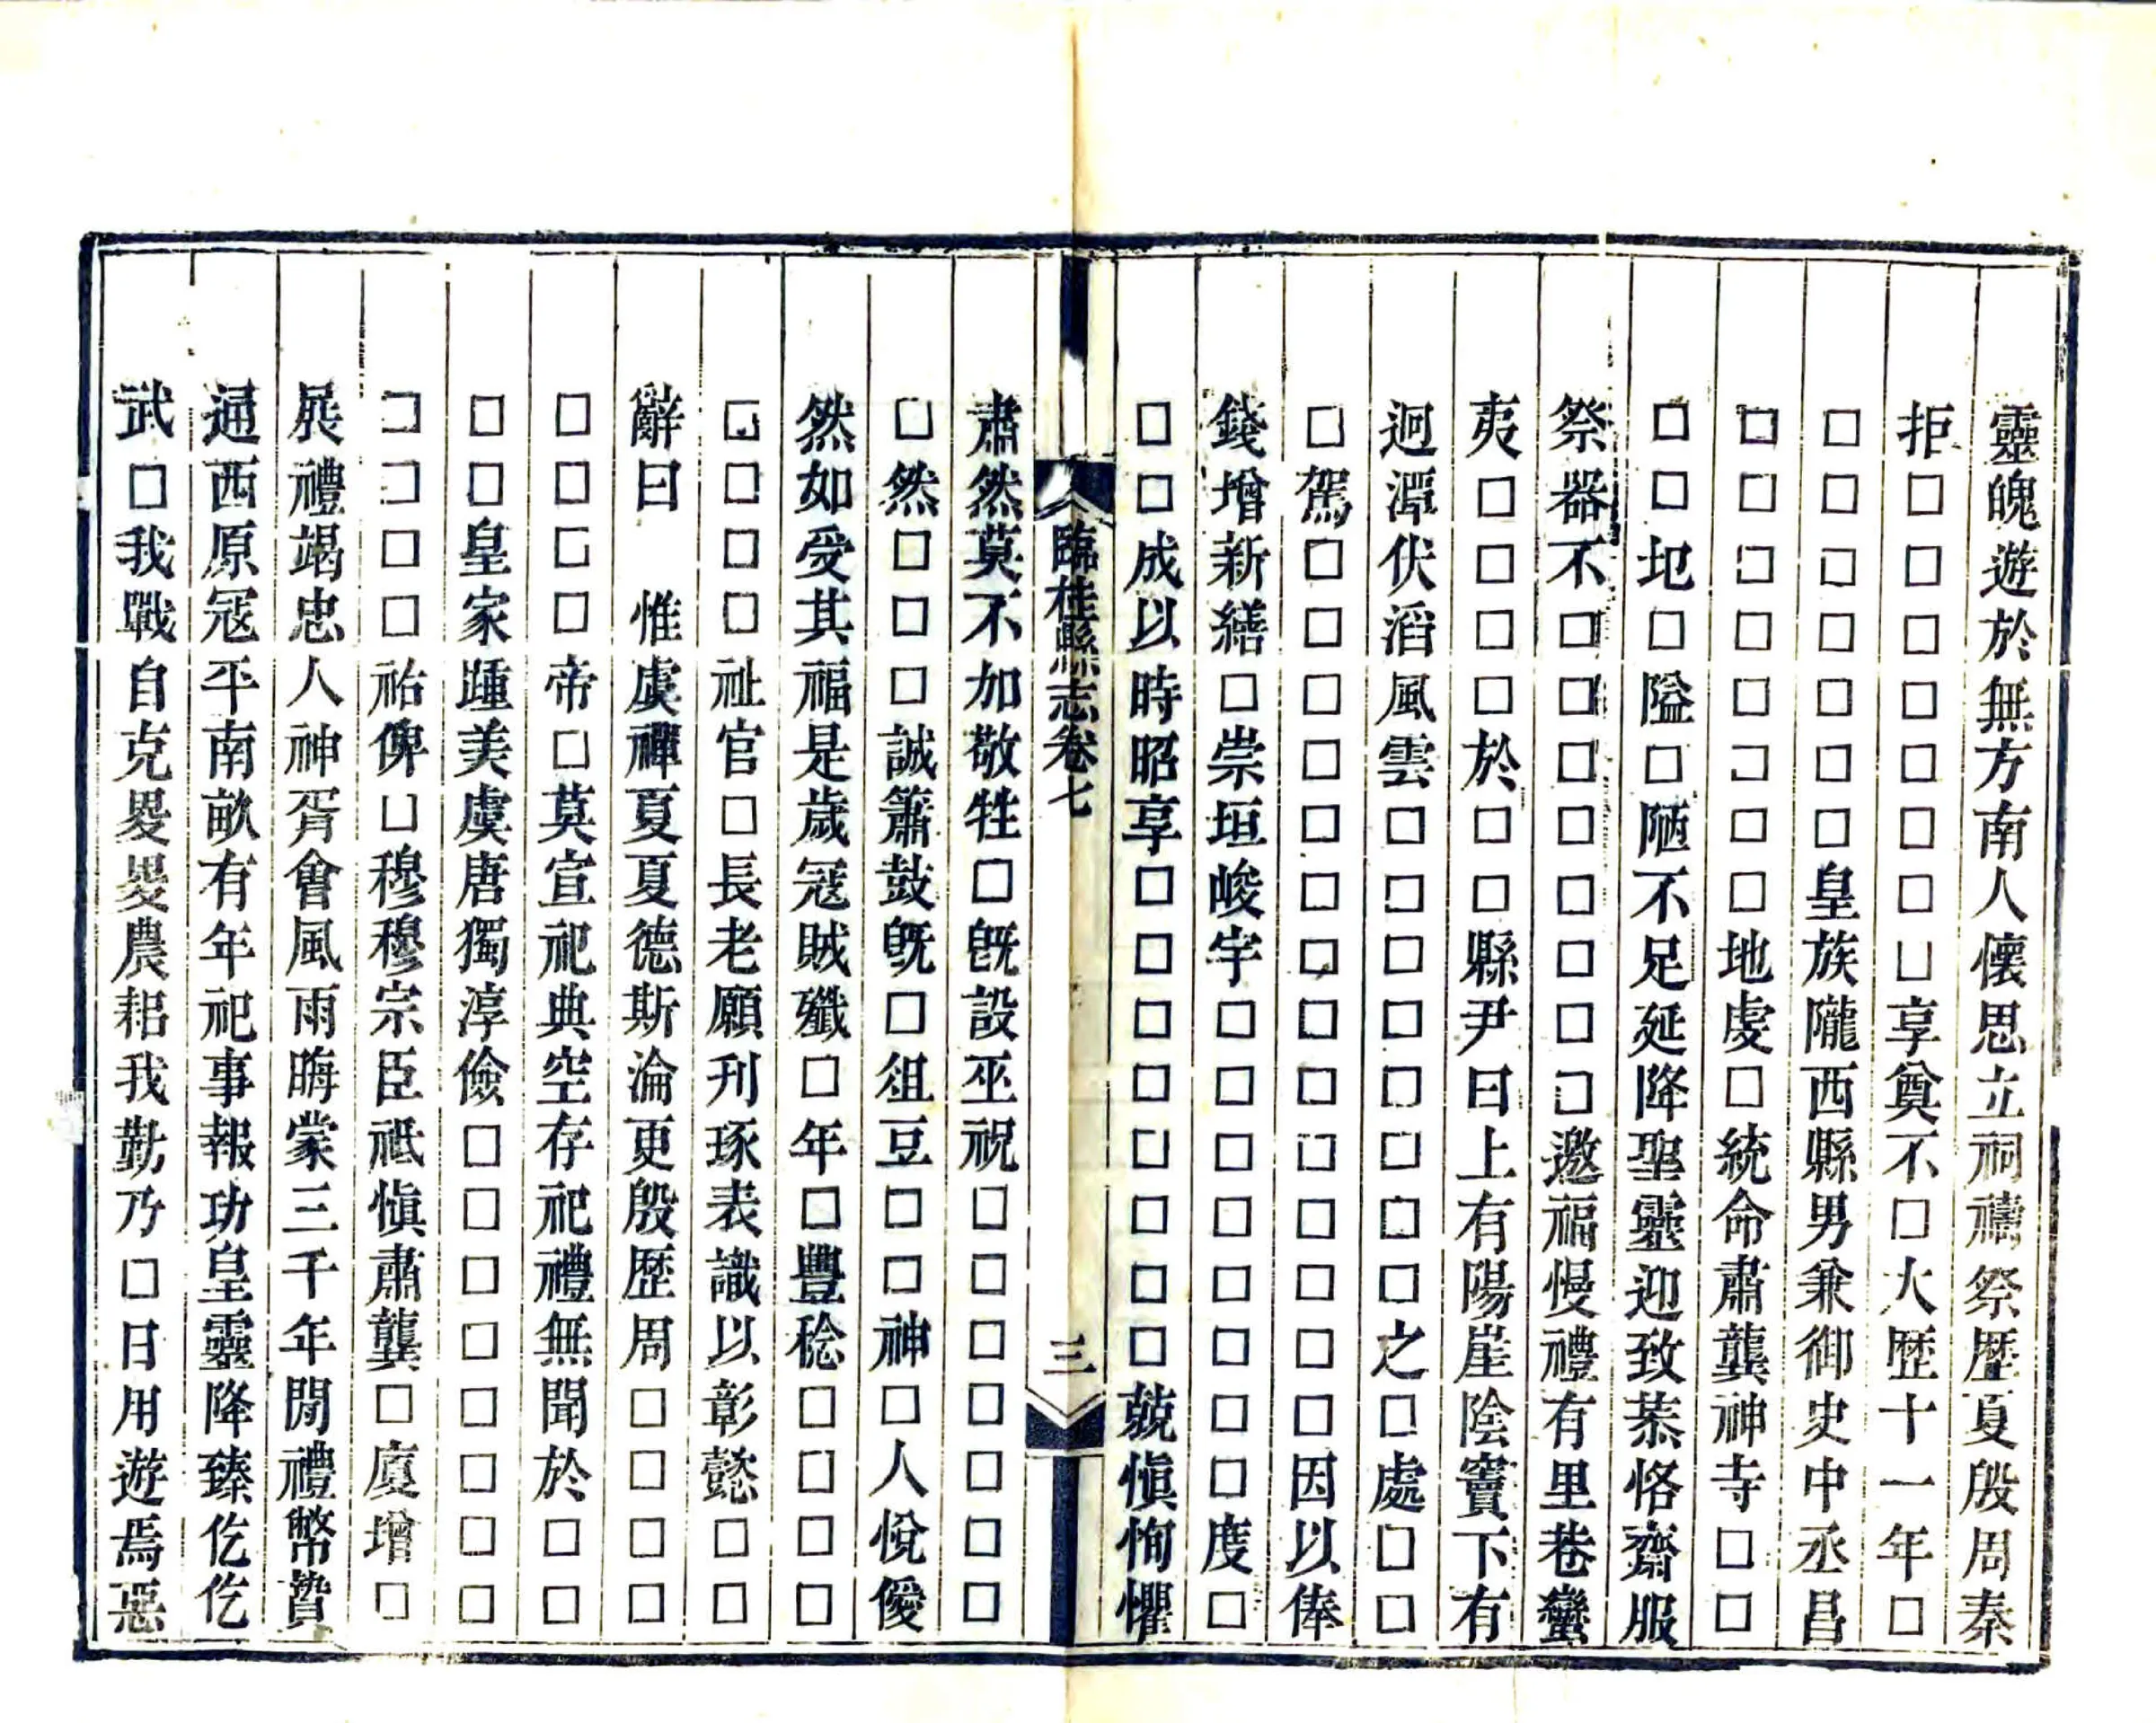 靈魄遊於無方南人懷思立祠禱祭歷夏殷周秦
拒□□□□□□□□享奠不□大歷十一年□
□□□□□□□皇族隴西縣男兼御史中丞昌
□□□□□□□□地處□統命肅龔神寺□□
□□圯□隘□陋不足延降聖靈迎致恭恪齋服
祭器不□□□□□□□□邀福慢禮有里巷蠻
夷□□□□於□□縣尹曰上有陽崖陰竇下有
迥潭伏滔風雲□□□□□□□□之□處□□
□駕□□□□□□□□□□□□□□因以俸
錢增新繕□崇垣峻宇□□□□□□□□度□
□□成以時昭享□□□□□□□□兢愼恂懼
臨桂縣志卷七　三
肅然莫不加敬牲□旣設巫祝□□□□□□□
□然□□□誠簫鼓旣□俎豆□□神□人悅僾
然如受其福是歲寇賊殲□年□豐稔□□□□
□□□□祉官□長老願刊琢表識以彰懿□□
辭曰　惟虞禪夏夏德斯淪更殷歷周□□□□
□□□□帝□莫宣祀典空存祀禮無聞於□□
□□皇家踵美虞唐獨淳儉□□□□□□□□
□□□□祐俾□穆穆宗臣祇愼肅龔□廈增□
展禮竭忠人神胥會風雨晦蒙三千年閒禮幣贄
通西原寇平南畝有年祀事報功皇靈降臻仡仡
武□我戰自克畟畟農耜我勤乃□日用遊焉惡